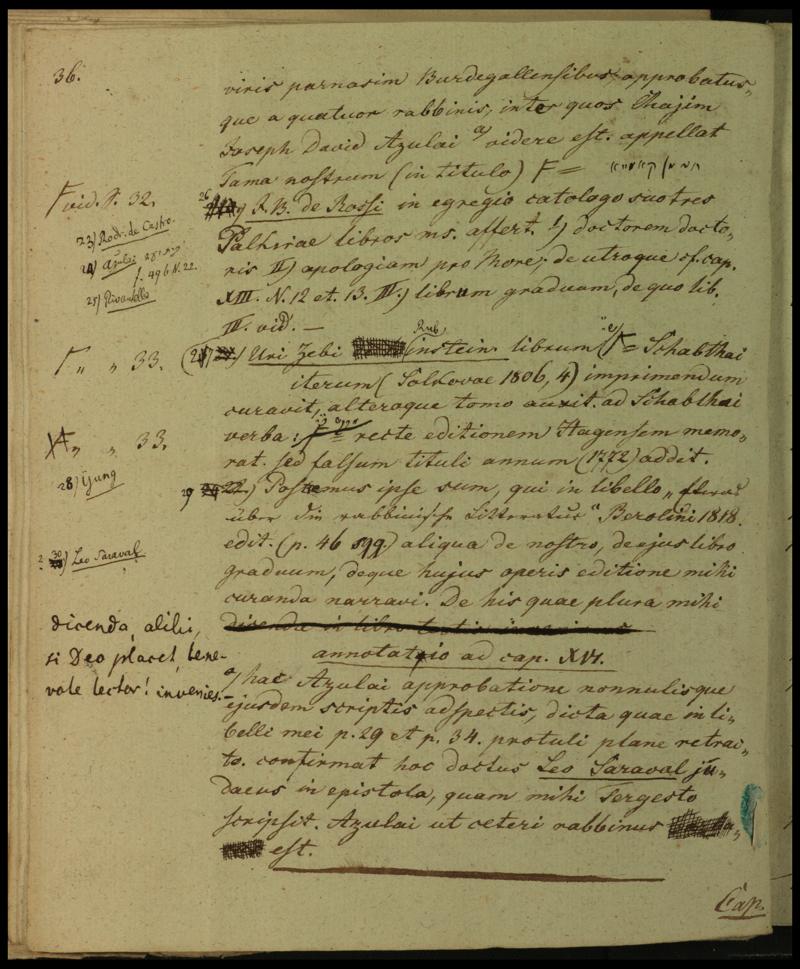 36.
viris parnasim Burdegallensibus, approbatus„
que a quatuor rabbinis, inter quos Chajim
Joseph David Azulai a) videre est. appellat
Tama nostrum (in titulo) Γ =
Γ vid. p. 32.
26 y R. B. de Rossi in egregio catologo suo tres
23) Rodr. de Castro.
Palkirae libros ms. affert. I) doctorem docto-
24) Azulai
f. 496 N. 22.
ris II) apologiam pro More; de utroque cf. cap.
25)
XIII. N. 12 et. 13. III.) librum graduum, de quo lib.
III. vid. —
Rub
Γ „ „ 33.
(27) Uri Zebi instein librum (Γ = Schabthai
iterum ( Solkovae 1806, 4) imprimendum
curavit, alteroque tomo auxit. ad Schabthai
„ „ 33.
verba: recte editionem Hagensem memo-
rat. sed falsum tituli annum (1772) addit.
28) Zung
29 22.) Postremus ipse sum, qui in libello „ Etwas
über die rabbinische Litteratur“ Berolini 1818.
edit. (p. 46 sqq.) aliqua de nostro, de ejus libro
30) Leo Saraval
graduum, deque hujus operis editione mihi
curanda narravi. De his quae plura mihi
dicenda, alibi,
si Deo placet, bene-
vole lector! invenies.—
annotatio ad cap. XVI.
a) hac Azulai approbatione nonnulisque
ejusdem scriptis adspectis, dicta quae in li-
belli mei p. 29 et p. 34. protuli plane retrac-
to. confirmat hoc doctus Leo Saraval ju-
daeus in epistola, quam mihi Tergesto
scripsit. Azulai ut ceteri rabbinus
est.
Cap.